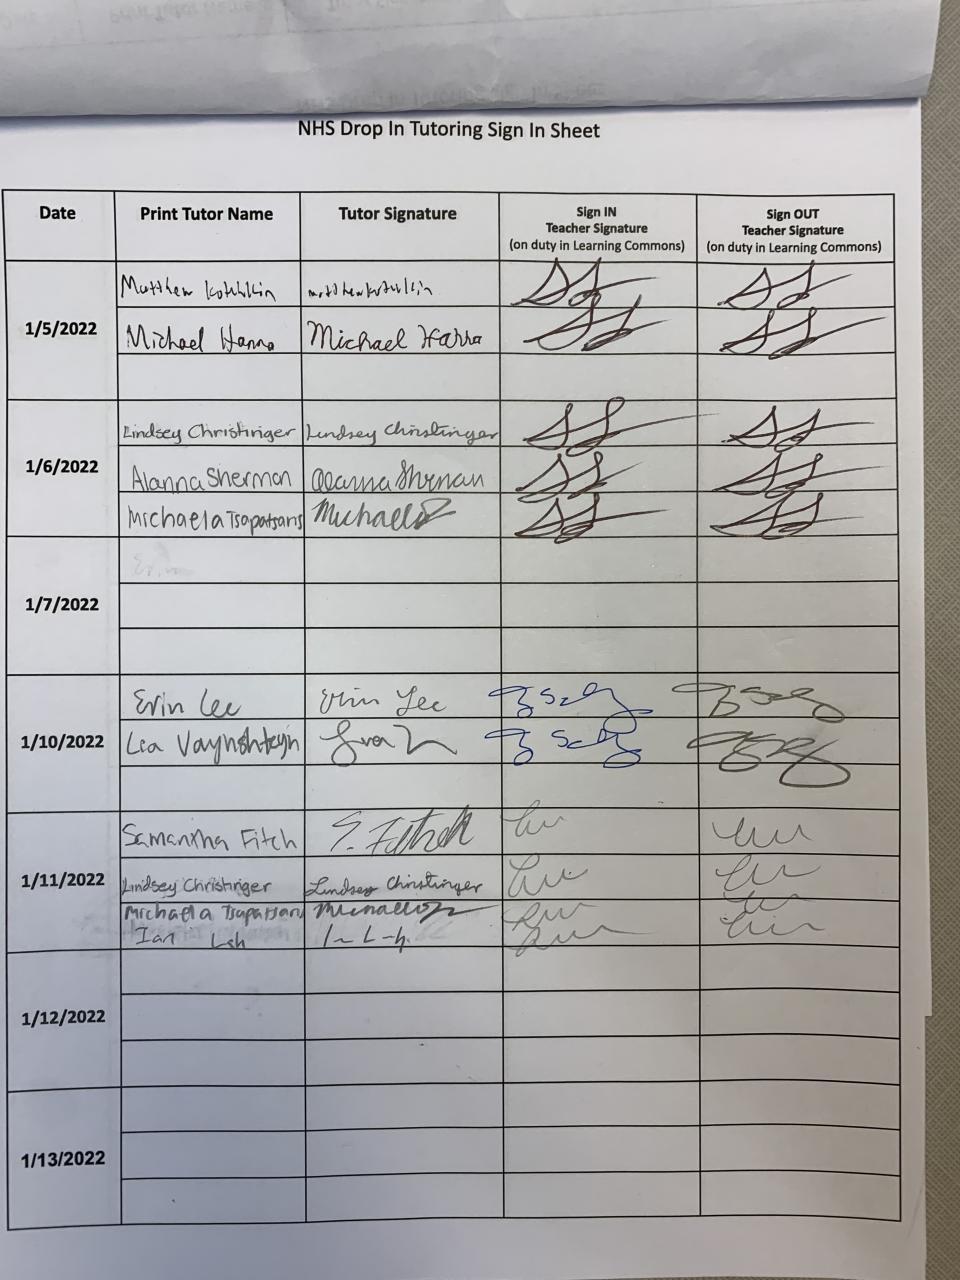 NHS Drop In Tutoring Sign In Sheet
Date Print Tutor Name Tutor Signature Sign IN Teacher Signature (on duty in Learning Commons) Sign OUT Teacher Signature (on duty in Learning Commons)
1/5/2022
Matthew
Michael Hanna Michael Hanna
1/6/2022
Lindsey Christinger Lindsey Christinger
Alanna Sherman Alanna Sherman
Michaela Tsapatsaris Michaela
1/7/2022
Erin
1/10/2022
Erin Lee Erin Lee
Lea Vaynshteyn
1/11/2022
Samantha Fitch S. Fitch
Lindsey Christinger Lindsey Christinger
Michaela Tsapatsaris
Ian
1/12/2022
1/13/2022